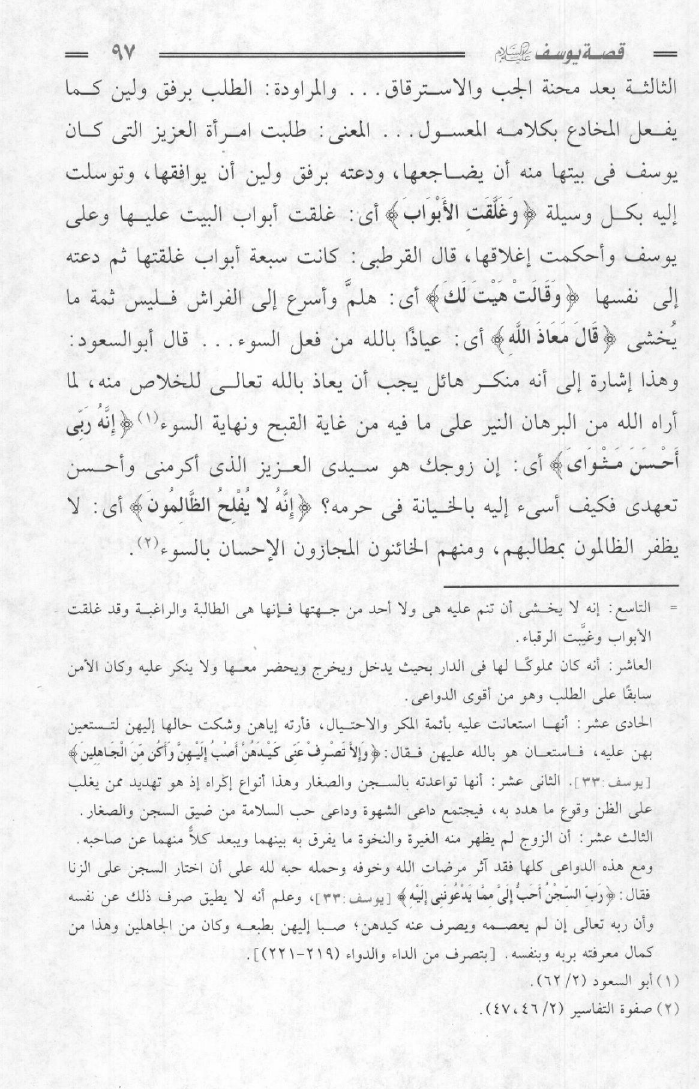 قصة يوسف عليه السلام
٩٧
الثالثة بعد محنة الجب والاسترقاق... والمراودة: الطلب برفق ولين كما
يفعل المخادع بكلامه المعسول... المعنى: طلبت امرأة العزيز التى كان
يوسف فى بيتها منه أن يضاجعها، ودعته برفق ولين أن يوافقها، وتوسلت
إليه بكل وسيلة ﴿وَغَلَّقَتِ الأَبْوَابَ﴾ أى: غلقت أبواب البيت عليها وعلى
يوسف وأحكمت إغلاقها، قال القرطبى: كانت سبعة أبواب غلقتها ثم دعته
إلى نفسها ﴿وَقَالَتْ هَيْتَ لَكَ﴾ أى: هلمَّ وأسرع إلى الفراش فليس ثمة ما
يُخشى ﴿قَالَ مَعَاذَ اللَّهِ﴾ أى: عياذًا بالله من فعل السوء... قال أبوالسعود:
وهذا إشارة إلى أنه منكر هائل يجب أن يعاذ بالله تعالى للخلاص منه، لما
أراه الله من البرهان النير على ما فيه من غاية القبح ونهاية السوء(١) ﴿إِنَّهُ رَبِّى
أَحْسَنَ مَثْوَاىَ﴾ أى: إن زوجك هو سيدى العزيز الذى أكرمنى وأحسن
تعهدى فكيف أسىء إليه بالخيانة فى حرمه؟ ﴿إِنَّهُ لا يُفْلِحُ الظَّالِمُونَ﴾ أى: لا
يظفر الظالمون بمطالبهم، ومنهم الخائنون المجازون الإحسان بالسوء(٢).
= التاسع: إنه لا يخشى أن تنم عليه هى ولا أحد من جهتها فإنها هى الطالبة والراغبة وقد غلقت
الأبواب وغيَّبت الرقباء.
العاشر: أنه كان مملوكًا لها فى الدار بحيث يدخل ويخرج ويحضر معها ولا ينكر عليه وكان الأمن
سابقًا على الطلب وهو من أقوى الدواعى.
الحادى عشر: أنها استعانت عليه بأئمة المكر والاحتيال، فأرته إياهن وشكت حالها إليهن لتستعين
بهن عليه، فاستعان هو بالله عليهن فقال: ﴿وَإِلاَّ تَصْرِفْ عَنِّى كَيْدَهُنَّ أَصْبُ إِلَيْهِنَّ وَأَكُن مِّنَ الْجَاهِلِينَ﴾
[يوسف:٣٣]. الثانى عشر: أنها تواعدته بالسجن والصغار وهذا أنواع إكراه إذ هو تهديد ممن يغلب
على الظن وقوع ما هدد به، فيجتمع داعى الشهوة وداعى حب السلامة من ضيق السجن والصغار.
الثالث عشر: أن الزوج لم يظهر منه الغيرة والنخوة ما يفرق به بينهما ويبعد كلاًّ منهما عن صاحبه.
ومع هذه الدواعى كلها فقد آثر مرضات الله وخوفه وحمله حبه لله على أن اختار السجن على الزنا
فقال: ﴿رَبِّ السِّجْنُ أَحَبُّ إِلَىَّ مِمَّا يَدْعُونَنِى إِلَيْهِ﴾ [يوسف:٣٣]، وعلم أنه لا يطيق صرف ذلك عن نفسه
وأن ربه تعالى إن لم يعصمه ويصرف عنه كيدهن؛ صبا إليهن بطبعه وكان من الجاهلين وهذا من
كمال معرفته بربه وبنفسه. [بتصرف من الداء والدواء (٢١٩-٢٢١)].
(١) أبو السعود (٢/ ٦٢).
(٢) صفوة التفاسير (٢/ ٤٦، ٤٧).